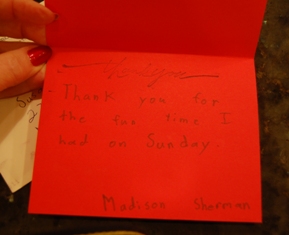 - Thank you for
the fun time I
had on Sunday.
Madison Sherman